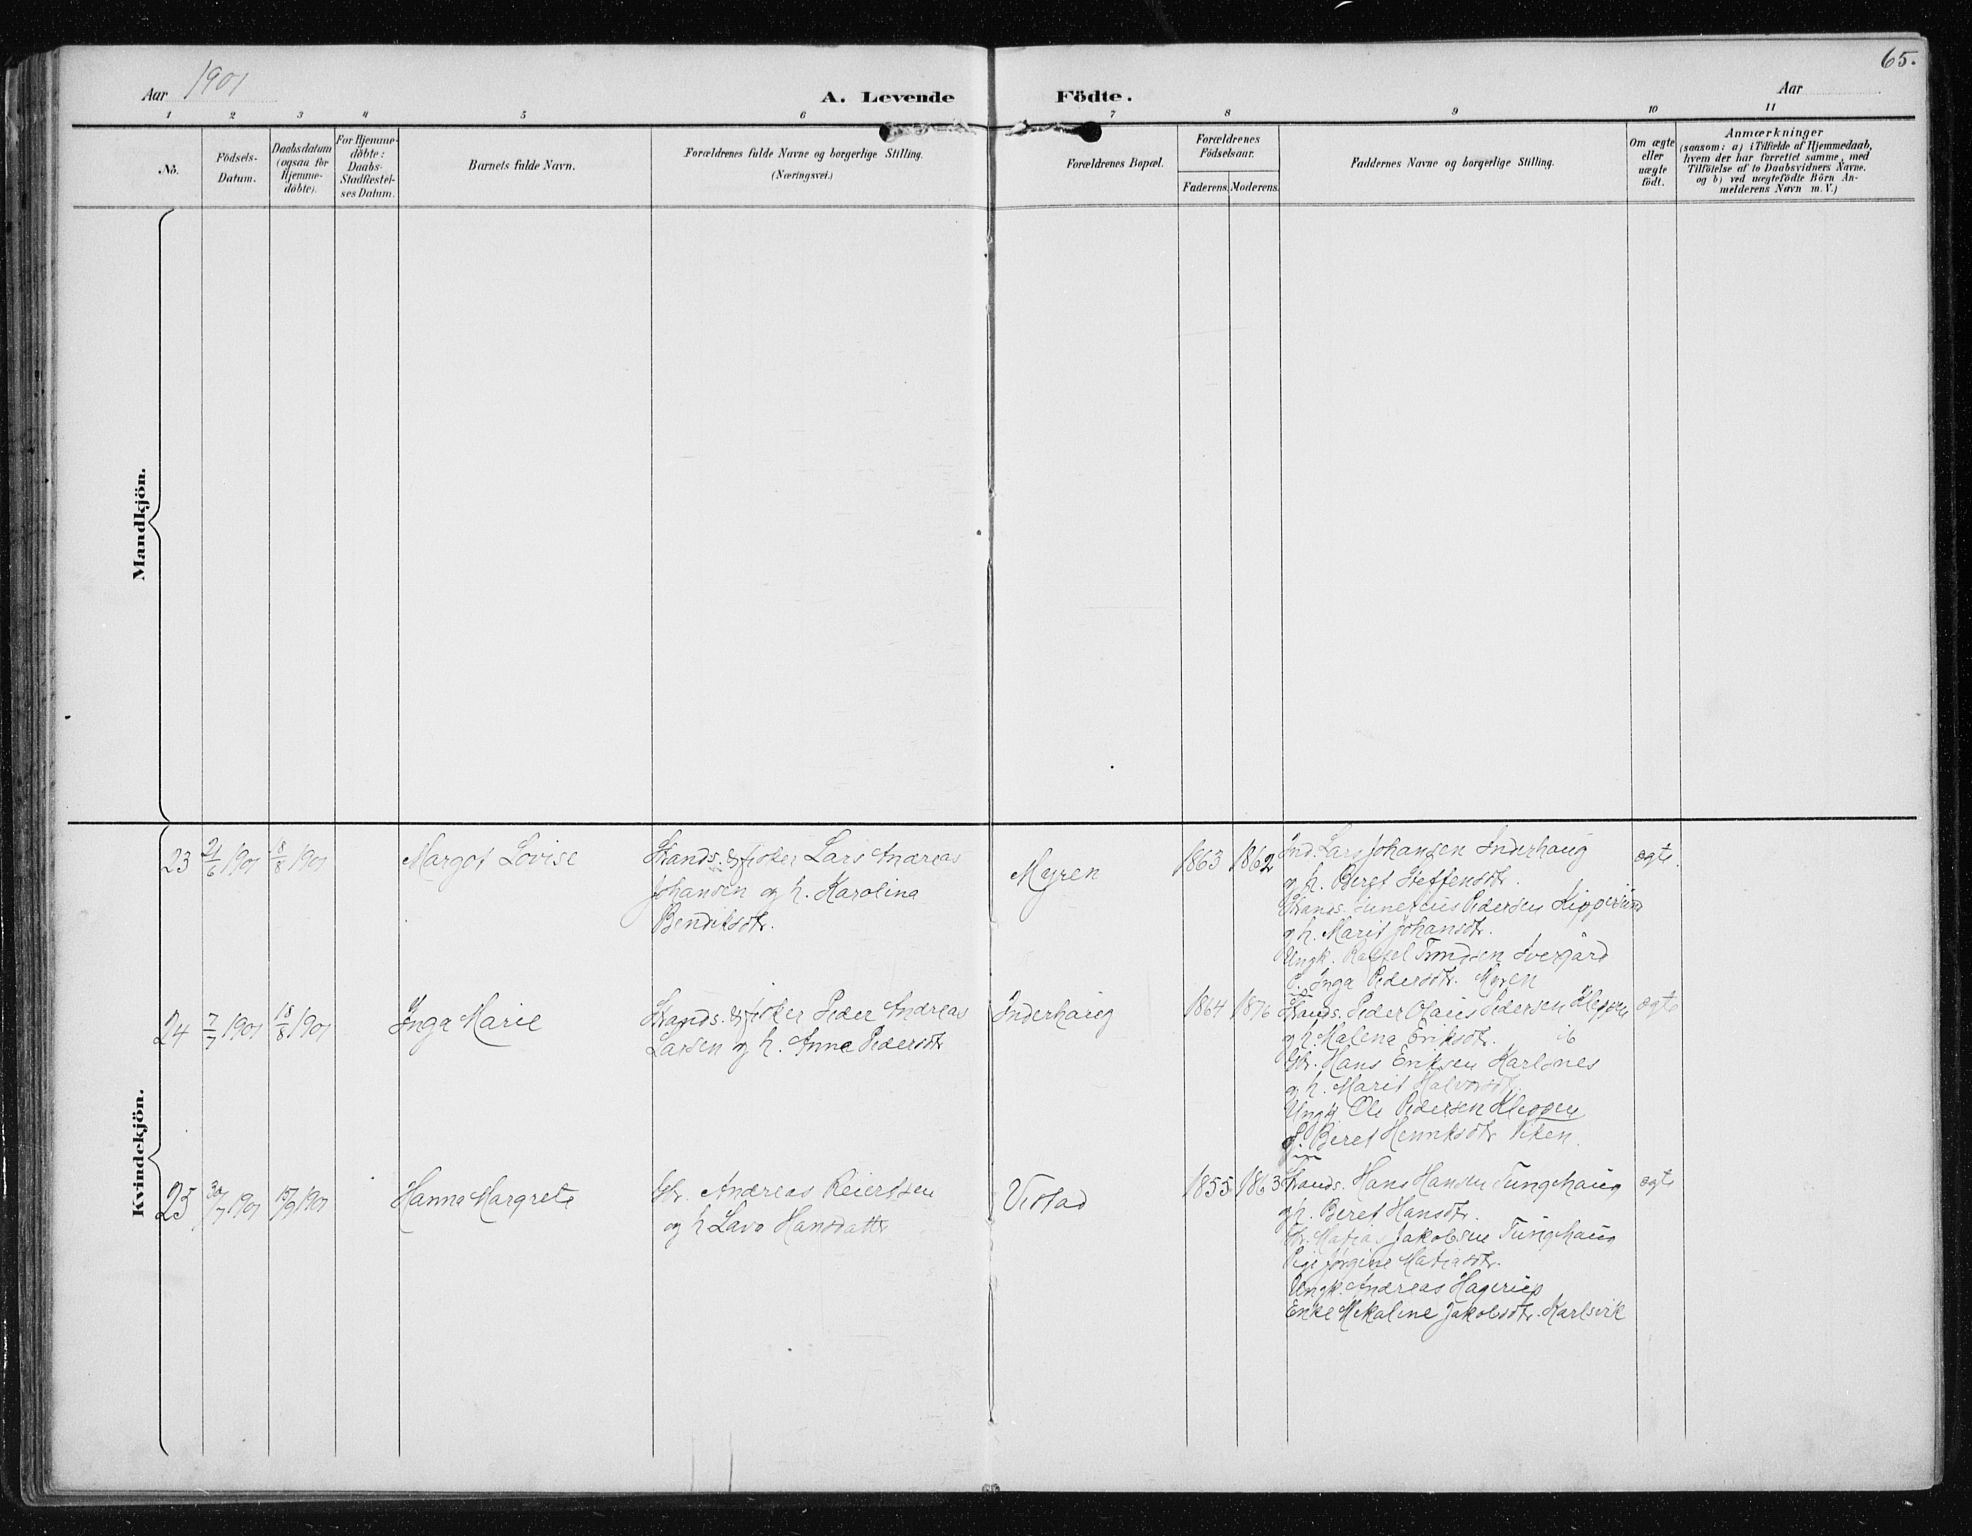 65.
Aar 1901
A. Levende Födte.
Aar
1 2 3 4 5 6 7 8 9 10 11
No.
Födsels-
Datum.
Daabsdatum
(ogsaa för
Hjemme-
döbte).
For Hjemme-
döbte:
Daabs-
Stadfæstel-
ses Datum.
Barnets fulde Navn.
Forældrenes fulde Navne og borgerlige Stilling.
(Næringsvei.)
Forældrenes Bopæl.
Forældrenes
Födselsaar.
Faderens. Moderens.
Faddernes Navne og borgerlige Stilling.
Om ægte
eller
uægte
födt.
Anmærkninger
(saasom: a) i Tilfælde af Hjemmedaab,
hvem der har forrettet samme, med
Tilföielse af to Daabsvidners Navne.
og b) ved uægtefödte Börn An-
melderens Navn m. V.)
Mandkjön.
Kvindekjön.
23 21/6 1901 18/8 1901
Margot Lovise
Strands. & fisker Lars Andreas
Johansen og h. Karolina
Bendiksdtr.
Myren
1863 1862
Ind. Lars Johansen Inderhaug
og h. Beret Steffensdtr.
Strands. Pedersen
og h. Marit Johansdtr.
Ungk. Tvergård
P. Inga Pedersdtr. Myren
ægte.
24 7/7 1901 18/8 1901
Inga Marie
Strands. & fisker Peder Andreas
Larsen og h. Anne Pedersdtr
Inderhaug
1864 1876
Strands. Peder Olaus Pedersen Kleppen
og h. Malena Eriksdtr. ib
Gbr. Hans Eriksen Karlsnes
og h. Marit Halvorsdtr.
Ungk Ole Pedersen Kleppen
P. Beret Henriksdtr. Viken.
ægte
25 30/7 1901 15/9 1901
Hanna Margrete
Gbr. Andreas Reiertsen
og h Lava Hansdatter
Vistad
1855 1863
Strands. Hans Hansen Tunghaug
og h. Beret Hansdtr.
Gbr. Matias Jakobsen Tunghaug
Pige Jørgine Matiasdtr.
Ungk. Andreas Hagerup
Enke Mekaline Jakobsdtr. Karlsvik
ægte